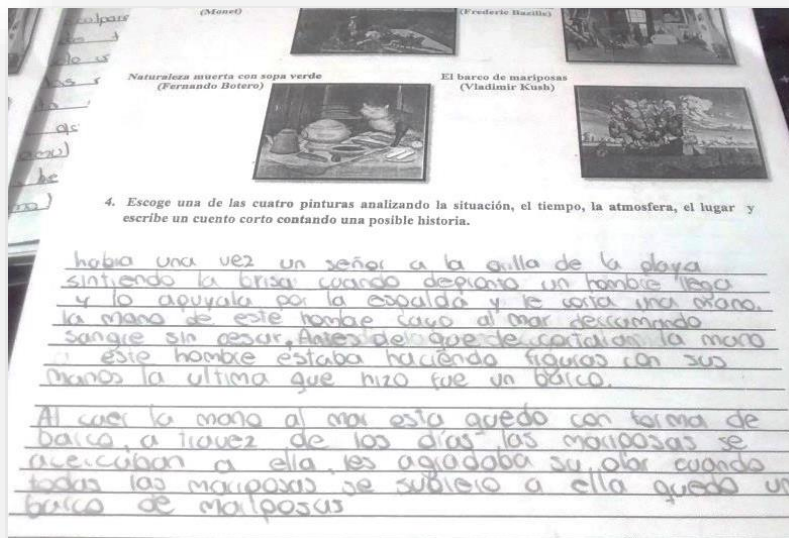 (Monet)
(Frederic Bazille)
Naturaleza muerta con sopa verde
(Fernando Botero)
El barco de mariposas
(Vladimir Kush)
4. Escoge una de las cuatro pinturas analizando la situación, el tiempo, la atmosfera, el lugar y
escribe un cuento corto contando una posible historia.
habia una vez un señor a la orilla de la playa
sintiendo la brisa cuando depronto un hombre llega
y lo apuyala por la espalda y le corta una mano.
la mano de este hombre cayo al mar derramando
sangre sin cesar, Antes del que le cortaran la mano
este hombre estaba haciendo figuras con sus
manos la ultima que hizo fue un barco.
Al caer la mano al mar esta quedo con forma de
barco, a travez de los días las mariposas se
acercaban a ella, les agradaba su olor cuando
todas las mariposas se subiero a ella quedo un
barco de mariposas